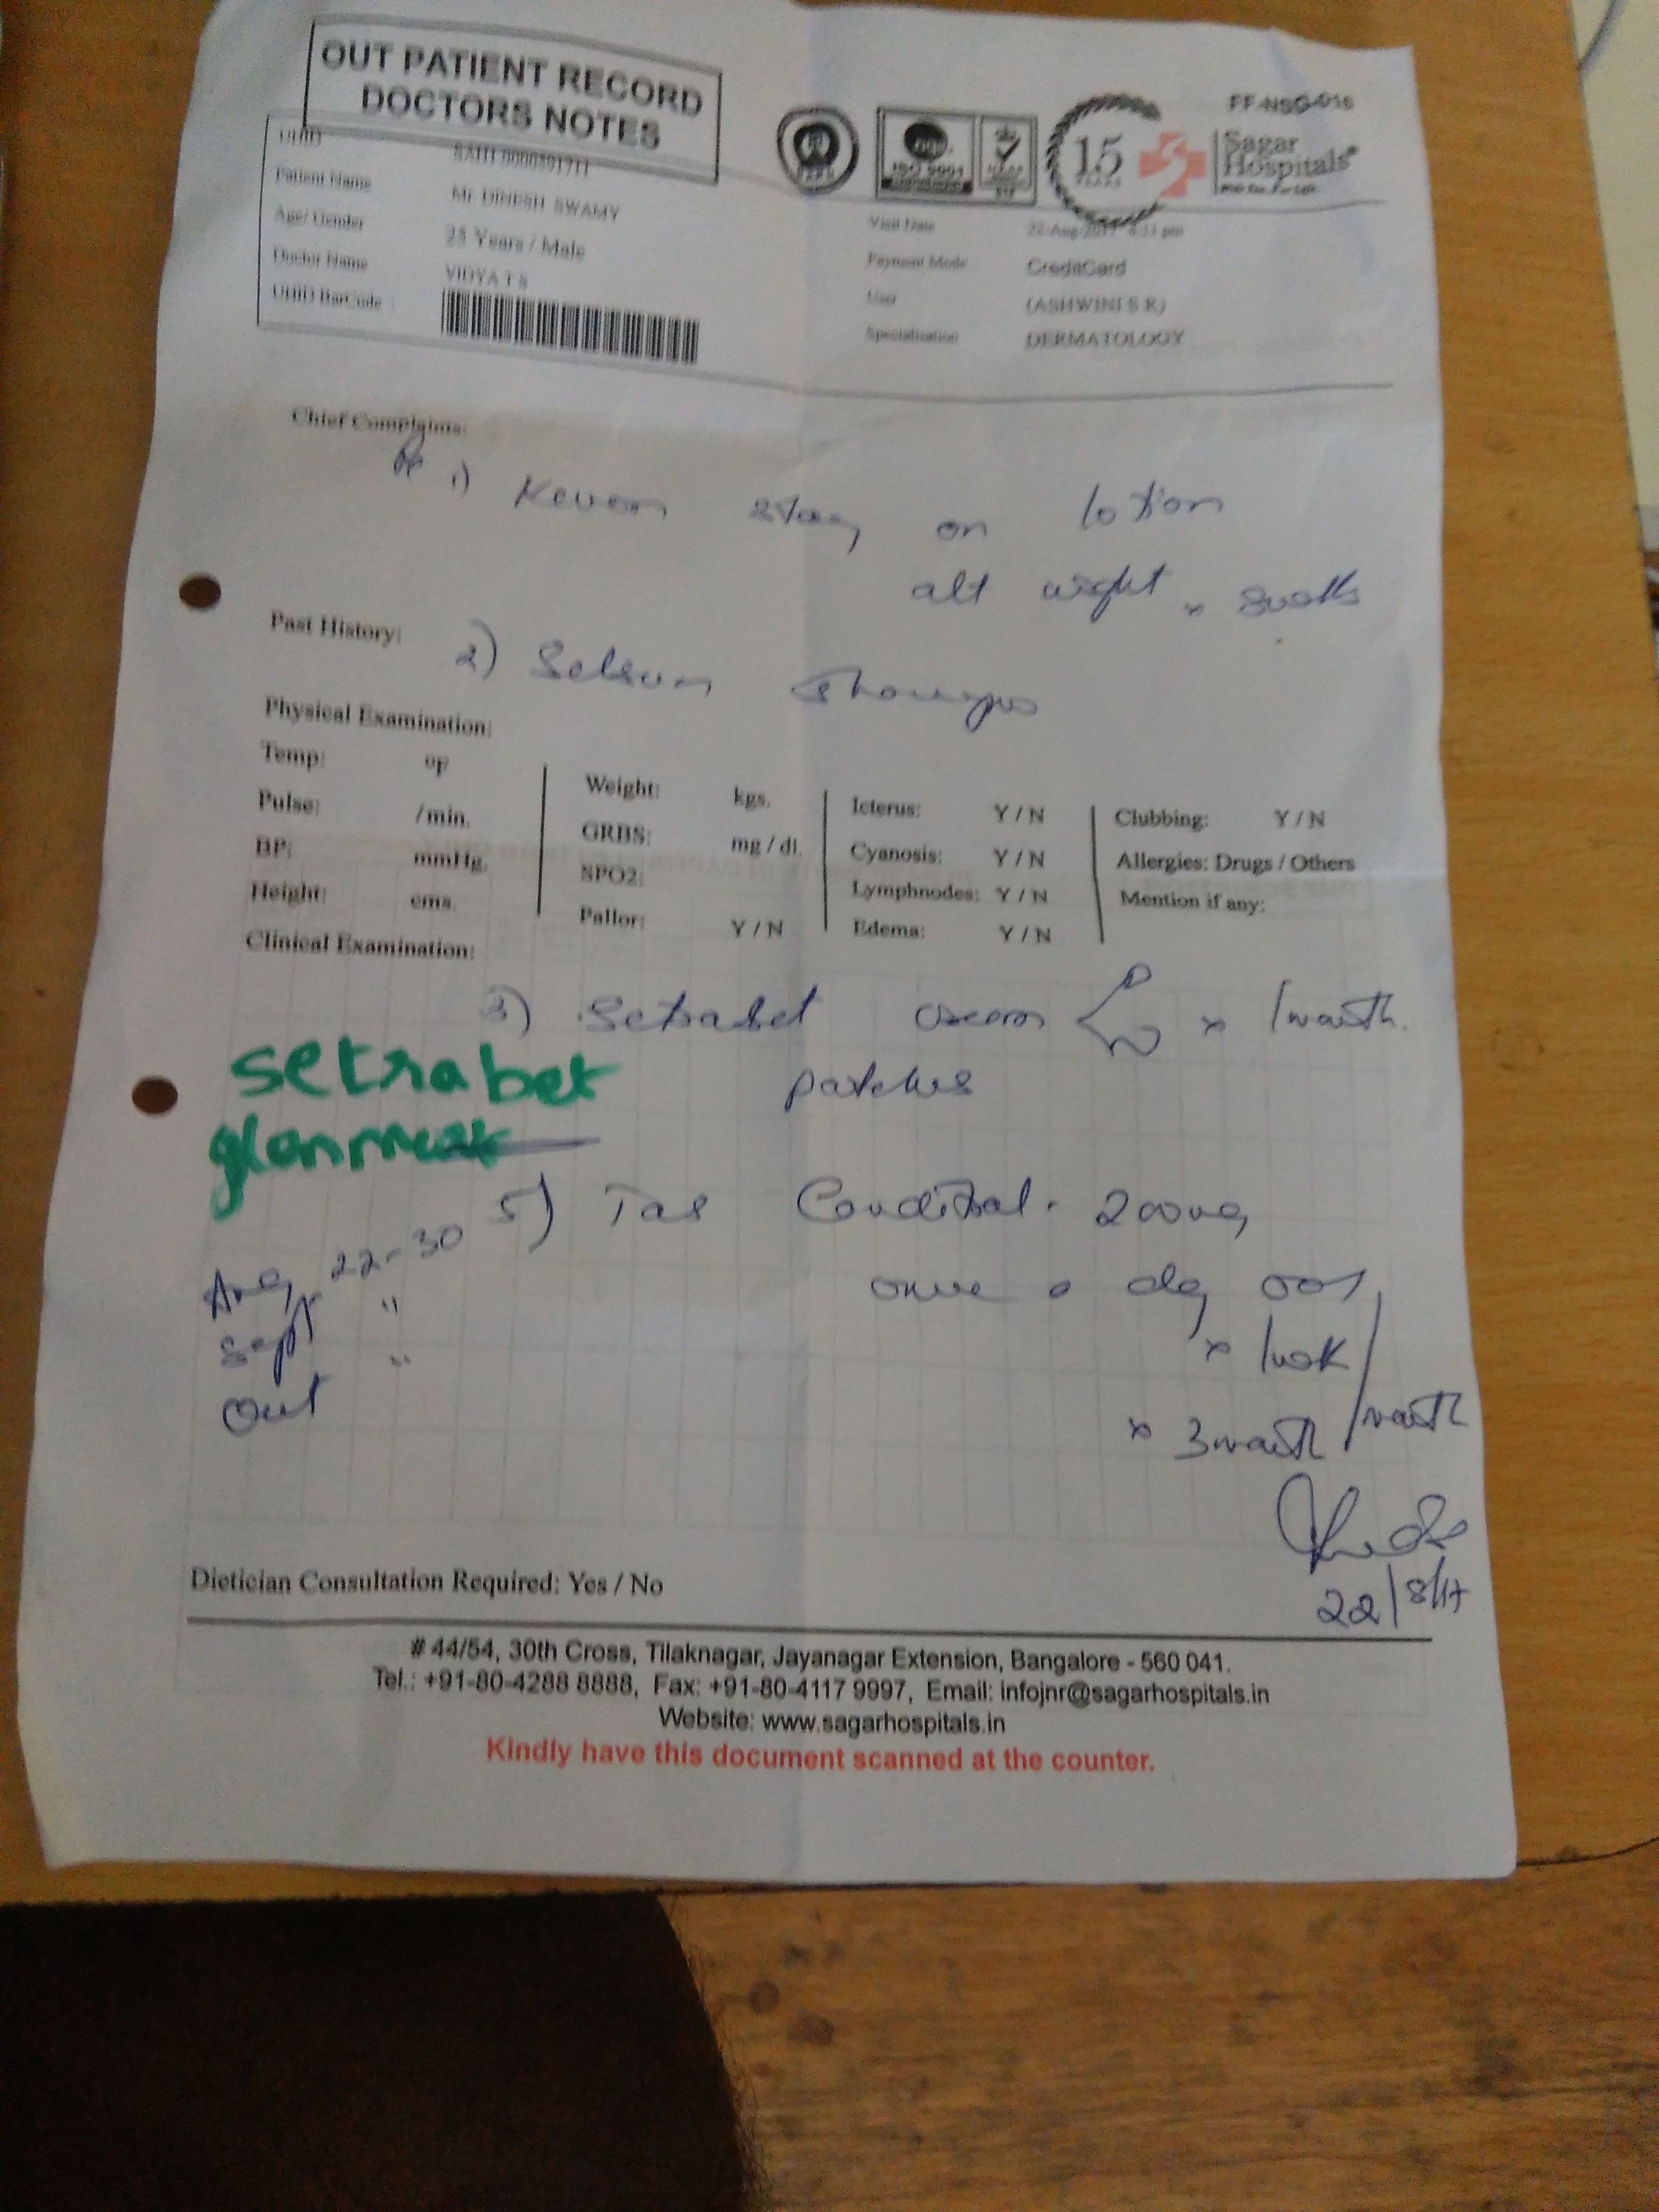 OUT PATIENT RECORD
DOCTORS NOTES
FF-NSG-016
ISO 9001
15
YEARS
Sagar
Hospitals
UHID
Patient Name Mr DINESH SWAMY
Age/ Gender 25 Years / Male
Doctor Name VIDYA T S
UHID BarCode :
Visit Date 22-Aug-2017 pm
Payment Mode : CreditCard
User (ASHWINI S R)
Specialisation DERMATOLOGY
Chief Complaints:
1) stay on lotion
alt night x
Past History:
2) Selsun Shampo
Physical Examination:
Temp: °F Weight: kgs. Icterus: Y / N Clubbing: Y / N
Pulse: / min. GRBS: mg / dl. Cyanosis: Y / N Allergies: Drugs / Others
BP: mmHg. SPO2: Lymphnodes: Y / N Mention if any:
Height: cms. Pallor: Y / N Edema: Y / N
Clinical Examination:
3) x 1 month.
setrabet patches
glenmark
5) Tab 200mg
Aug 22-30 once a
Sept " x 1 week/
Oct " x 3 month /month
22/8/17
Dietician Consultation Required: Yes / No
# 44/54, 30th Cross, Tilaknagar, Jayanagar Extension, Bangalore - 560 041.
Tel.: +91-80-4288 8888, Fax: +91-80-4117 9997, Email: infojnr@sagarhospitals.in
Website: www.sagarhospitals.in
Kindly have this document scanned at the counter.